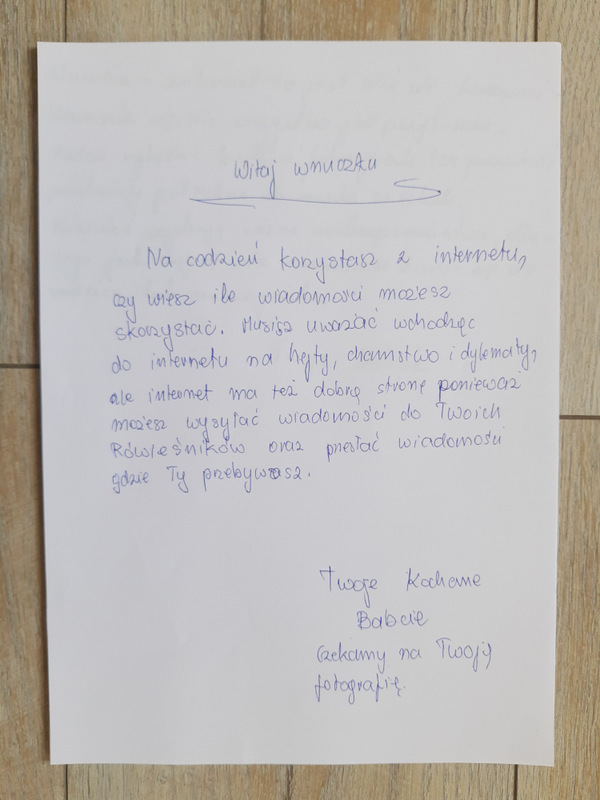 Witaj wnuczku
Na codzień korzystasz z internetu,
czy wiesz ile wiadomości możesz
skorzystać. Musisz uważać wchodząc
do internetu na hejty, chamstwo i dylematy,
ale internet ma też dobrą stronę ponieważ
możesz wysyłać wiadomości do Twoich
Rówieśników oraz presłać wiadomości
gdzie Ty przebywasz.
Twoje Kochane
Babcie
Czekamy na Twoją
fotografię.